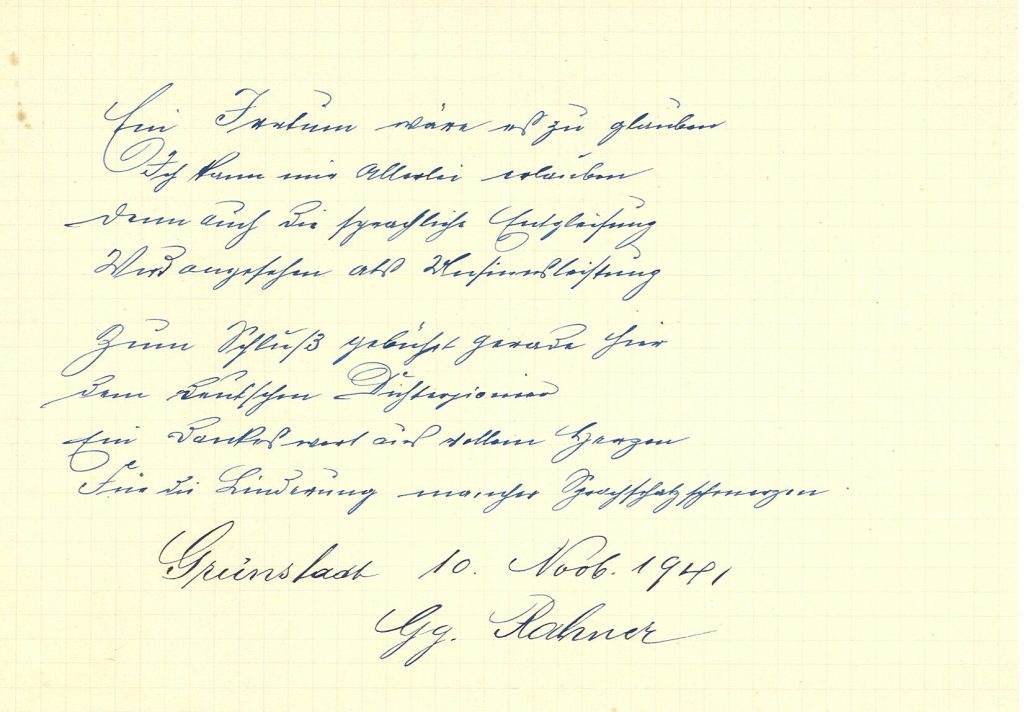 Ein Irrtum wäre es zu glauben
Ich kann mir Allerlei erlauben
Denn auch die sprachliche Entgleisung
Wird angesehen als Unsinnsleistung
Zum Schluß gebührt gerade hier
dem deutschen Dichterpionier
Ein Dankeswort aus vollem Herzen
Für die Linderung mancher Sprachschatzschmerzen
Grünstadt 10. Novb. 1941
Gg. Rahner